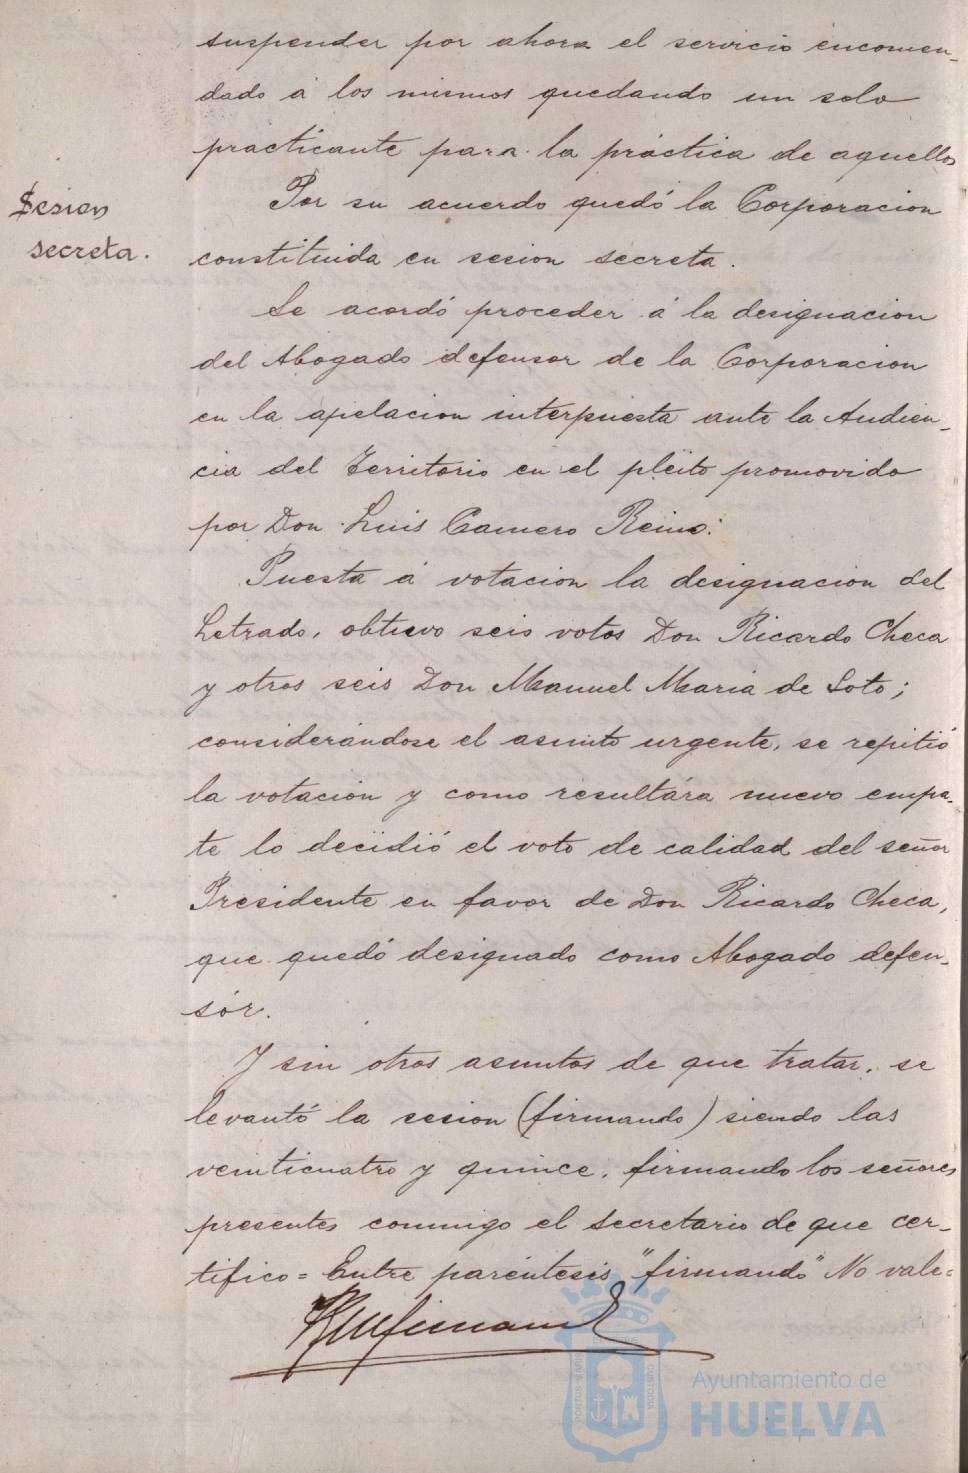 suspender por ahora el servicio encomen-
dado á los mismos quedando un solo
practicante para la práctica de aquellos
Sesion
secreta.
Por su acuerdo quedó la Corporacion
constituida en sesion secreta.
Se acordó proceder á la designacion
del Abogado defensor de la Corporacion
en la apelacion interpuesta ante la Audien-
cia del Territorio en el pleito promovido
por Don Luis Camero Reino.
Puesta á votacion la designacion del
Letrado, obtuvo seis votos Don Ricardo Checa
y otros seis Don Manuel Maria de Soto;
considerándose el asunto urgente, se repitió
la votacion y como resultára nuevo empa-
te lo decidió el voto de calidad del señor
Presidente en favor de Don Ricardo Checa,
que quedó designado como Abogado defen-
sór.
Y sin otros asuntos de que tratar, se
levantó la sesion (firmando) siendo las
veinticuatro y quince, firmando los señores
presentes conmigo el secretario de que cer-
tifico = Entre paréntesis "firmando" No vale=
Ayuntamiento de
HUELVA